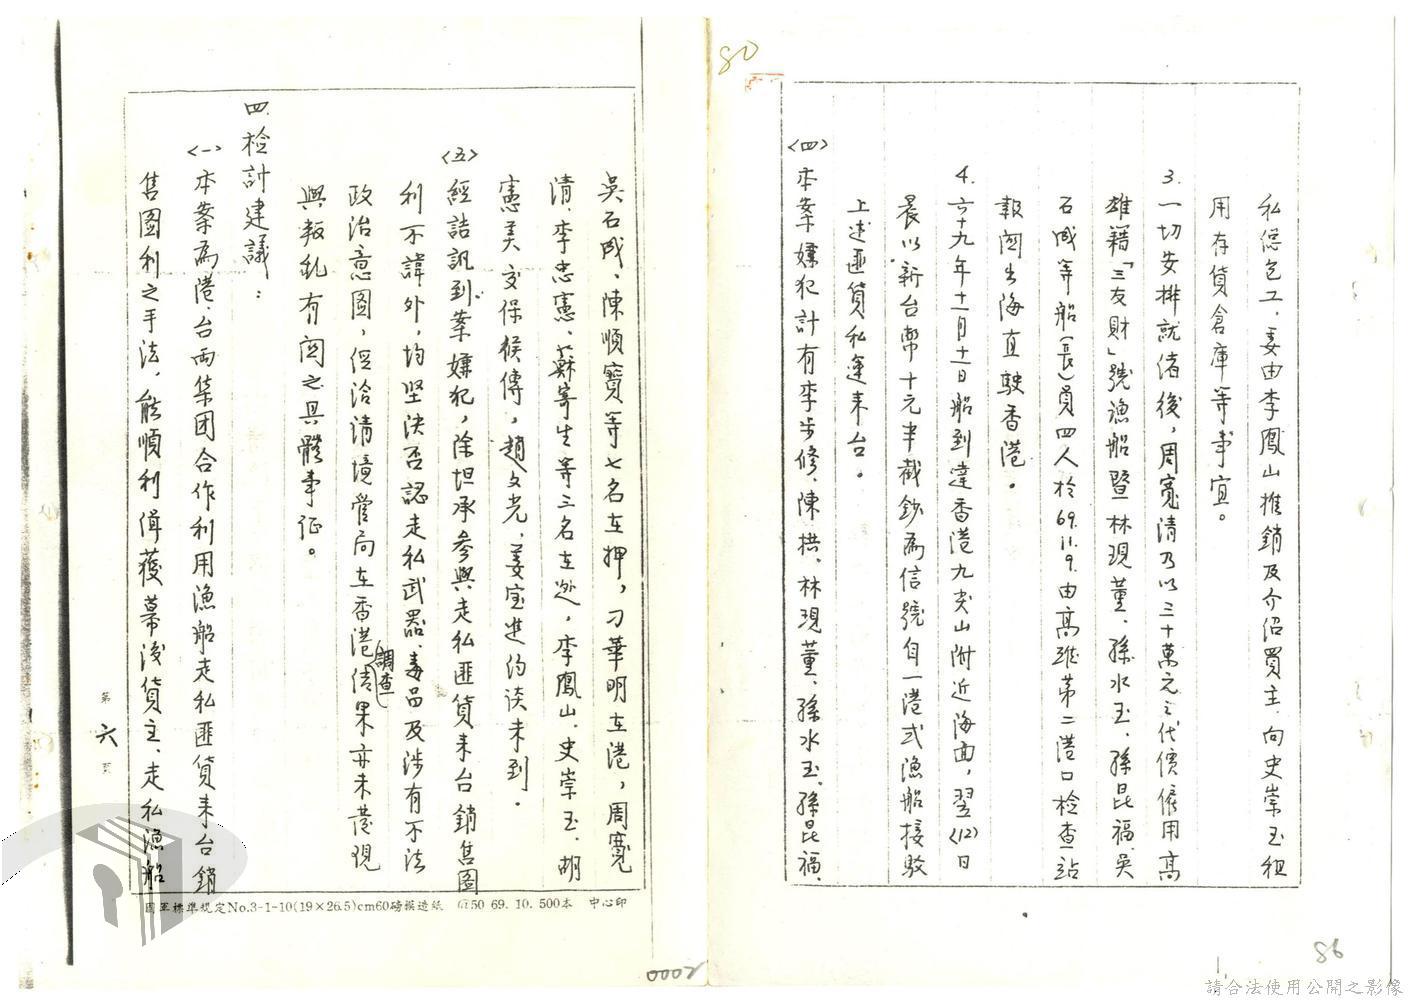 80
私怨包工,姜由李鳳山推銷及介紹買主、向史崇玉租
用存貨倉庫等事宜。
3.一切安排就緒後,周寬清乃以三十萬元之代價僱用高
雄籍「三友財」號漁船暨林現董、孫水玉、孫昆福、吳
石成等船(長)員四人於69.11.9.由高雄第二港口檢查站
報関出海直駛香港。
4.六十九年十一月十一日船到達香港九尖山附近海面,翌<12>日
晨以新台幣十元半截鈔為信號自一港式漁船接駁
上述匪貨私運來台。
<四>本案嫌犯計有李步修、陳拱、林現董、孫水玉、孫昆福、
86
吳石成、陳順寶等七名在押,刁華明在港,周寬
清、李忠憲、蘇寄生等三名在逃,李鳳山、史崇玉、胡
憲美交保候傳,趙文光、姜宝進約談未到.
<五>經詰訊到案嫌犯,除坦承參與走私匪貨來台銷售圖
利不諱外,均坚決否認走私武器、毒品及涉有不法
政治意圖,但洽請境管局在香港(調查)結果亦未發現
與叛乱有関之具體事証。
四.檢討建議:
<一>本案為港、台両集団合作利用漁船走私匪貨來台銷
售圖利之手法,能順利俱獲幕後貨主、走私漁船
第六頁
國軍標準規定No.3-1-10(19×26.5)cm60磅模造紙 @50 69.10.500本 中心印
2000
請合法使用公開之影像